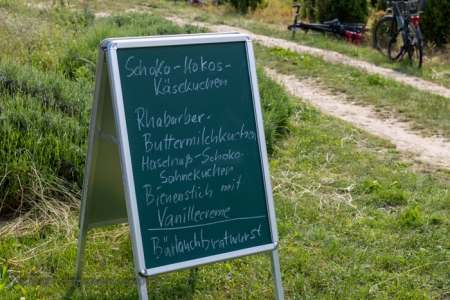 Schoko-Kokos-
Käsekuchen
Rhabarber-
Buttermilchkuchen
Haselnuß-Schoko-
Sahnekuchen
Bienenstich mit
Vanillecreme
Bärlauchbratwurst